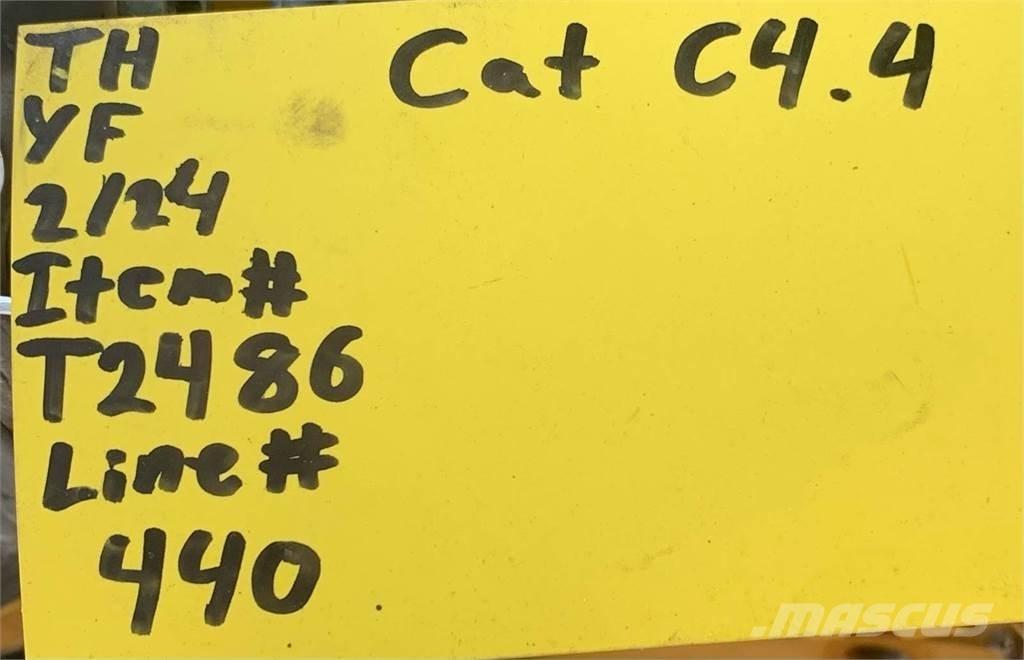 TH
YF
2/24
Item#
T2486
Line#
440
Cat C4.4
.MASCUS